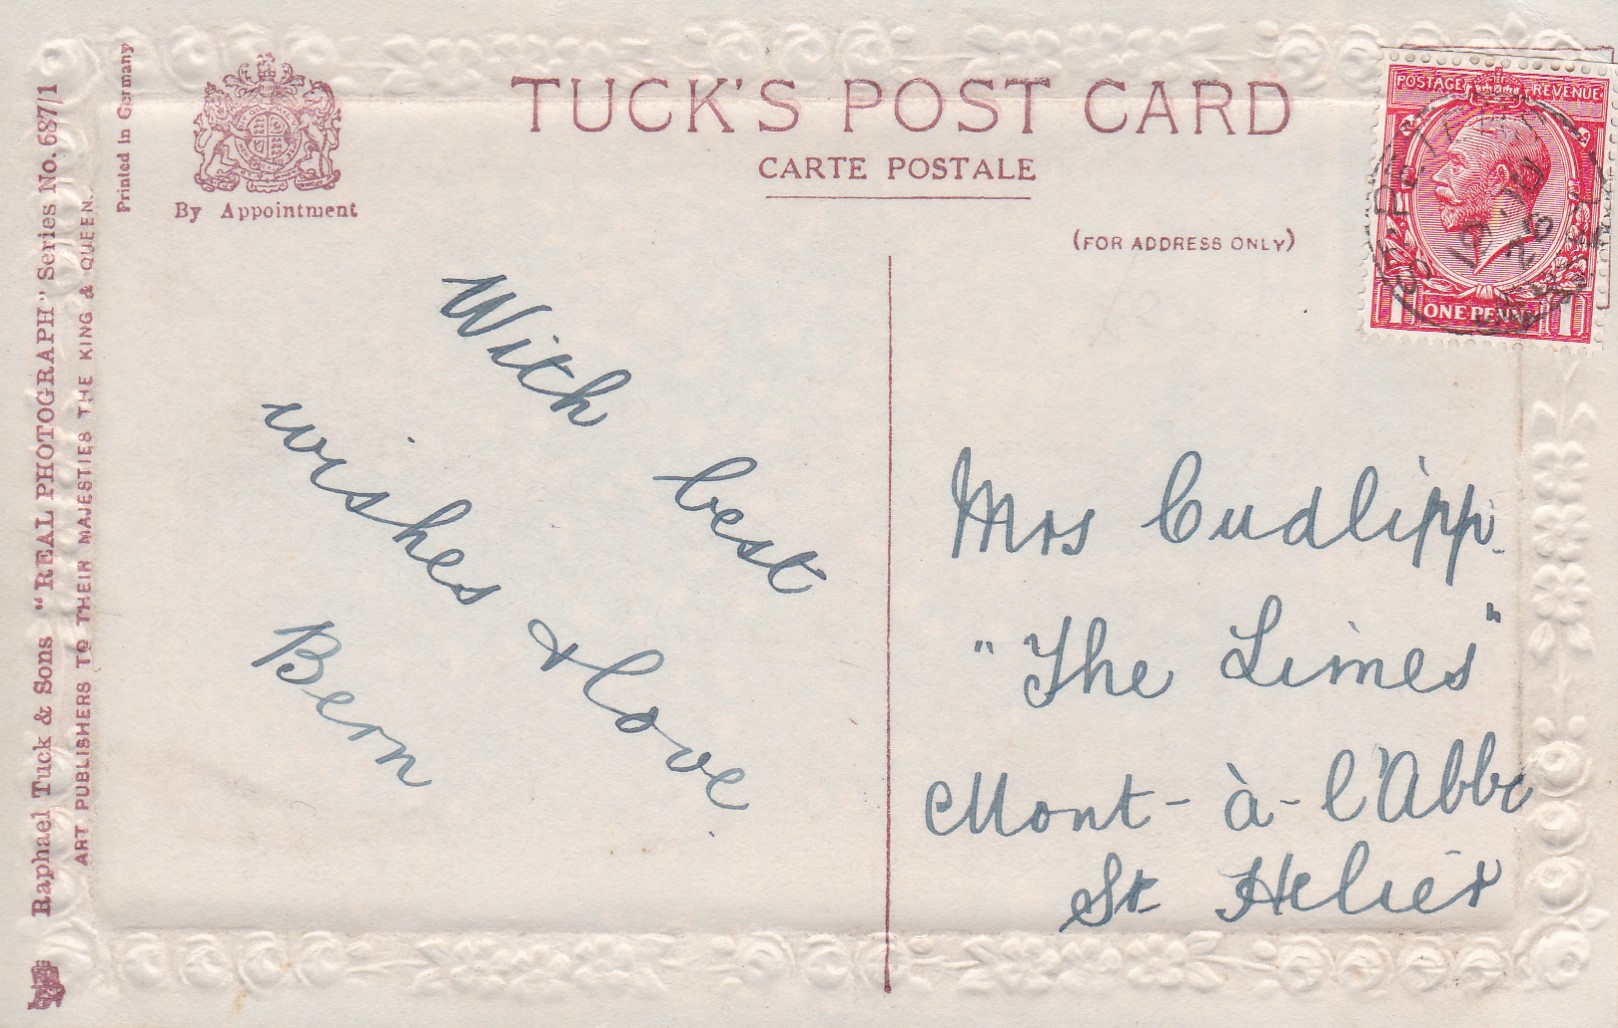 TUCK'S POST CARD
CARTE POSTALE
(FOR ADDRESS ONLY)
By Appointment
Printed in Germany
Raphael Tuck & Sons "REAL PHOTOGRAPH" Series No. 687/1
ART PUBLISHERS TO THEIR MAJESTIES THE KING & QUEEN.
POSTAGE REVENUE
1 ONE PENNY 1
With best
wishes & love
Bern
Mrs Cudlipp.
"The Limes"
Mont-à-l'Abbe
St Helier